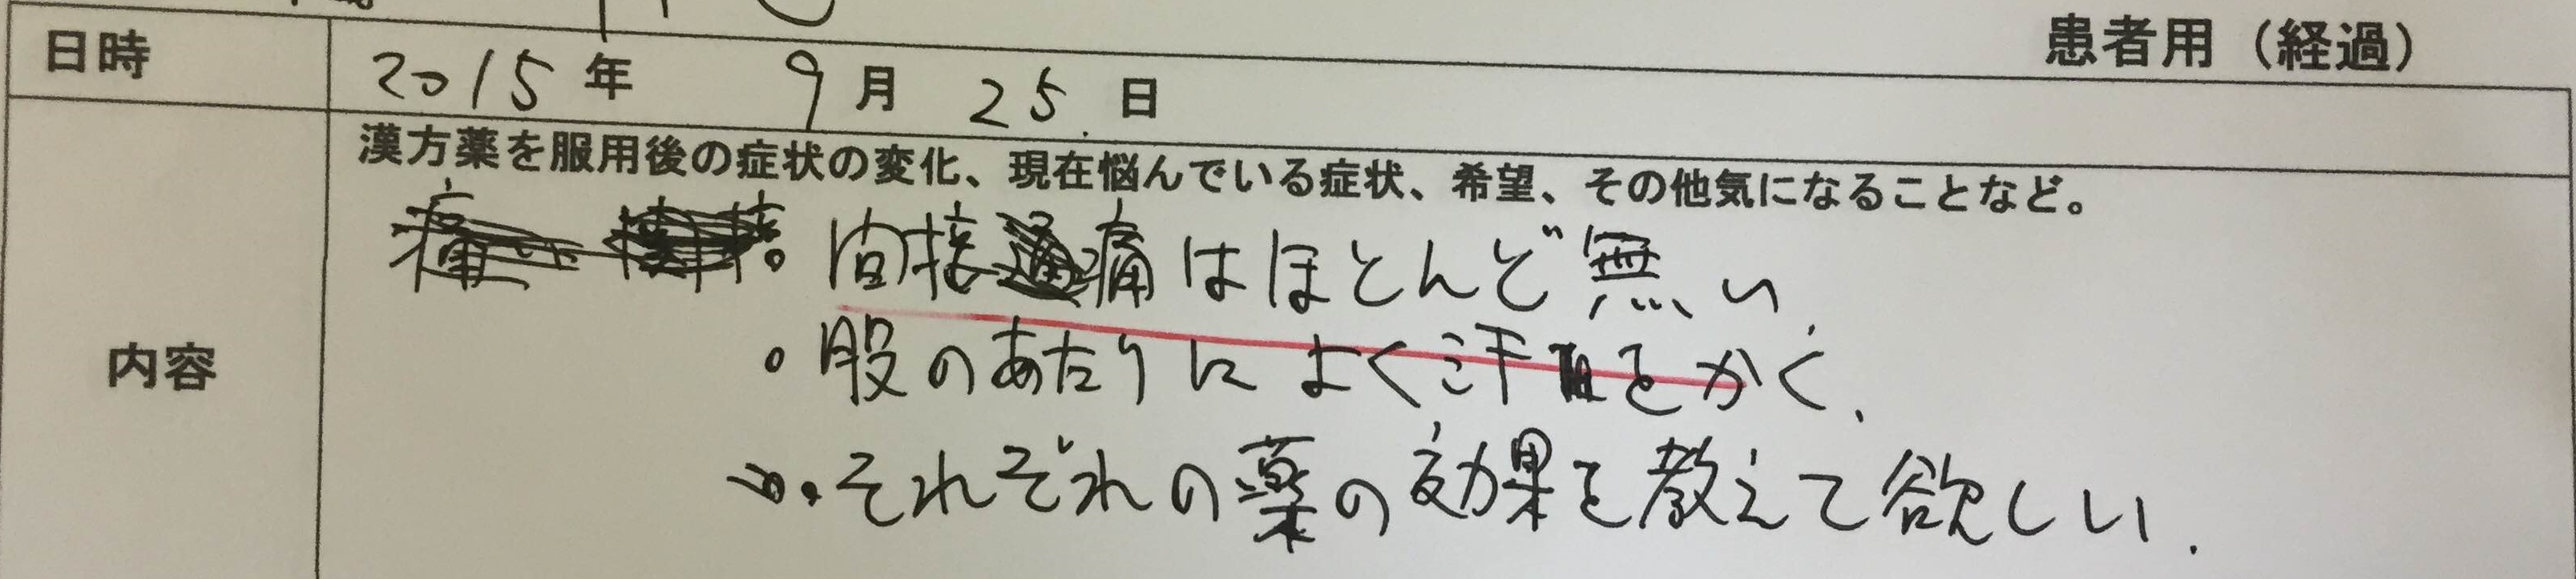 患者用（経過）
日時 2015年 9月 25日
内容
漢方薬を服用後の症状の変化、現在悩んでいる症状、希望、その他気になることなど。
。間接痛はほとんど無い.
。股のあたりによく汗をかく.
。それぞれの薬の効果を教えて欲しい.